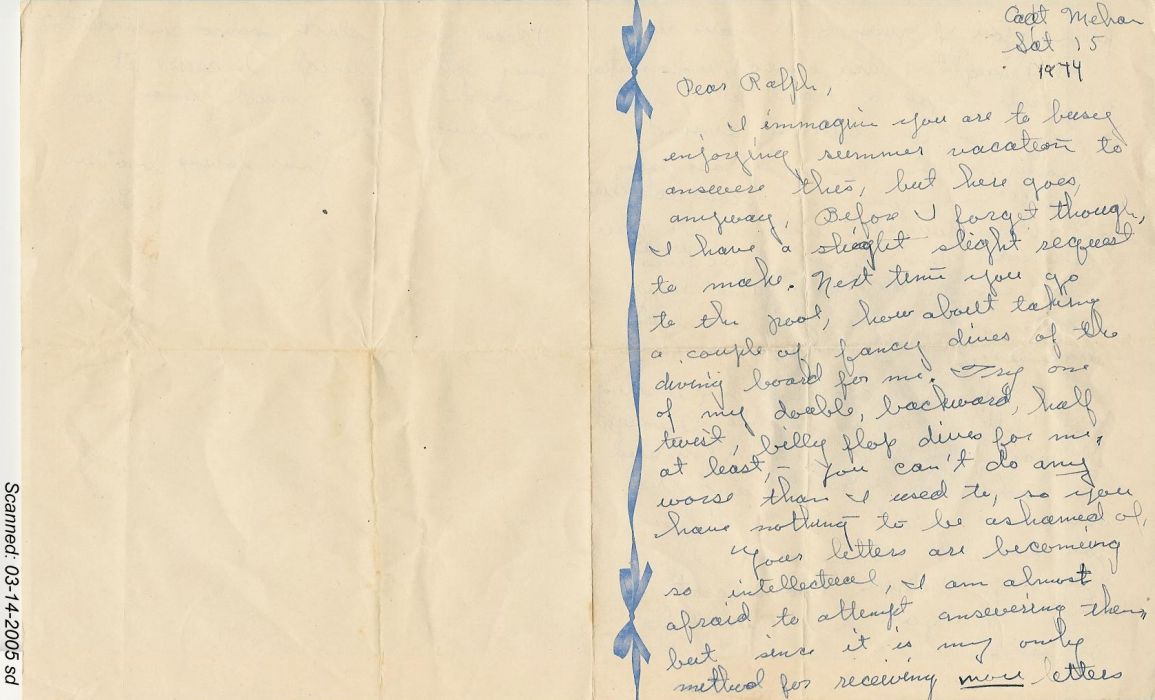 Camp Mehan
Sat 15
1944
Dear Ralph,
I immagin you are to busy
enjoying summer vacation to
answere this, but here goes,
anyway, Before I forget though,
I have a slieght slight request
to make. Next time you go
to the pool, how about taking
a couple of fancy dives of the
diving board for me. Try one
of my double, backward, half
twist, billy flop dives for me,
at least, – you can't do any
worse than I used to, so you
have nothing to be ashamed of.
"Your letters are becomeing
so intellectuel, I am almost
afraid to attempt answering them,
but since it is my only
method for receiveing more letters
Scanned: 03-14-2005 sd